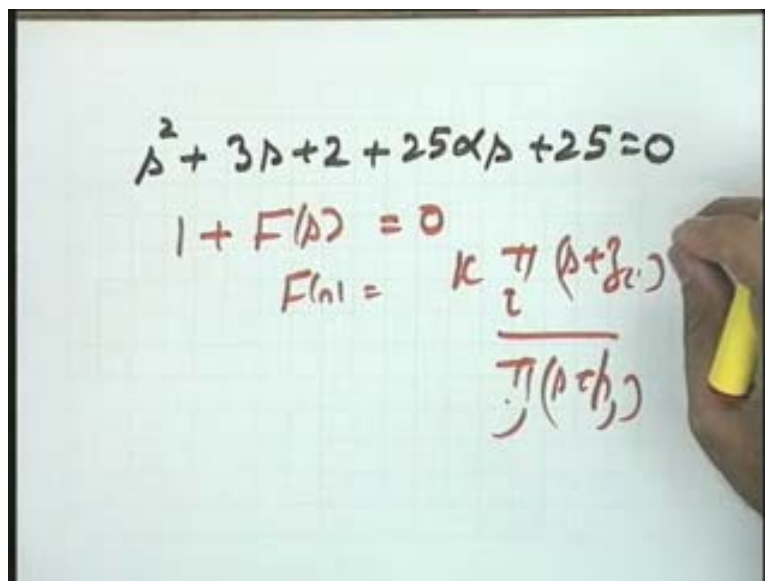 s² + 3s + 2 + 25αs + 25 = 0
1 + F(s) = 0
F(s) = K π_i (s + z_i)
π_j (s + p_j)